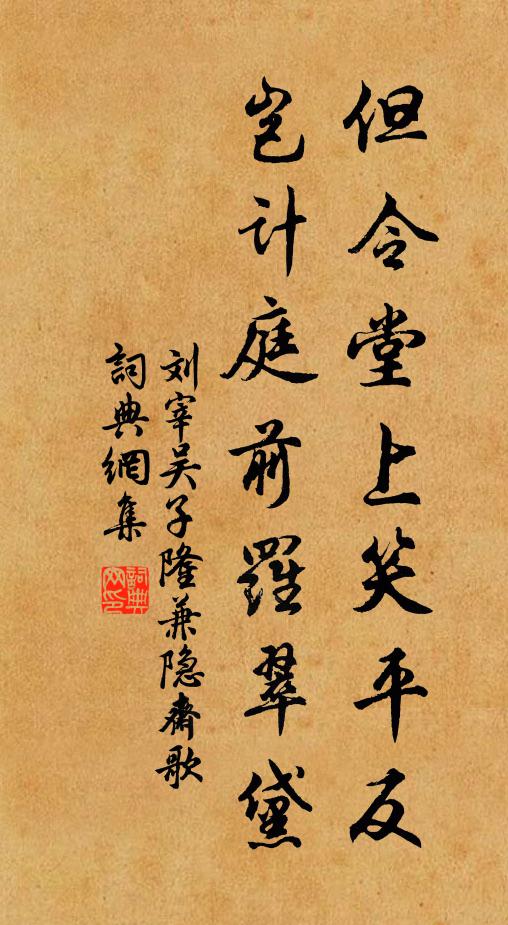 但令堂上笑平反
岂计庭前羅翠黛
刘宰吴子隆兼隐齋歌
詞典網集
詞典网印